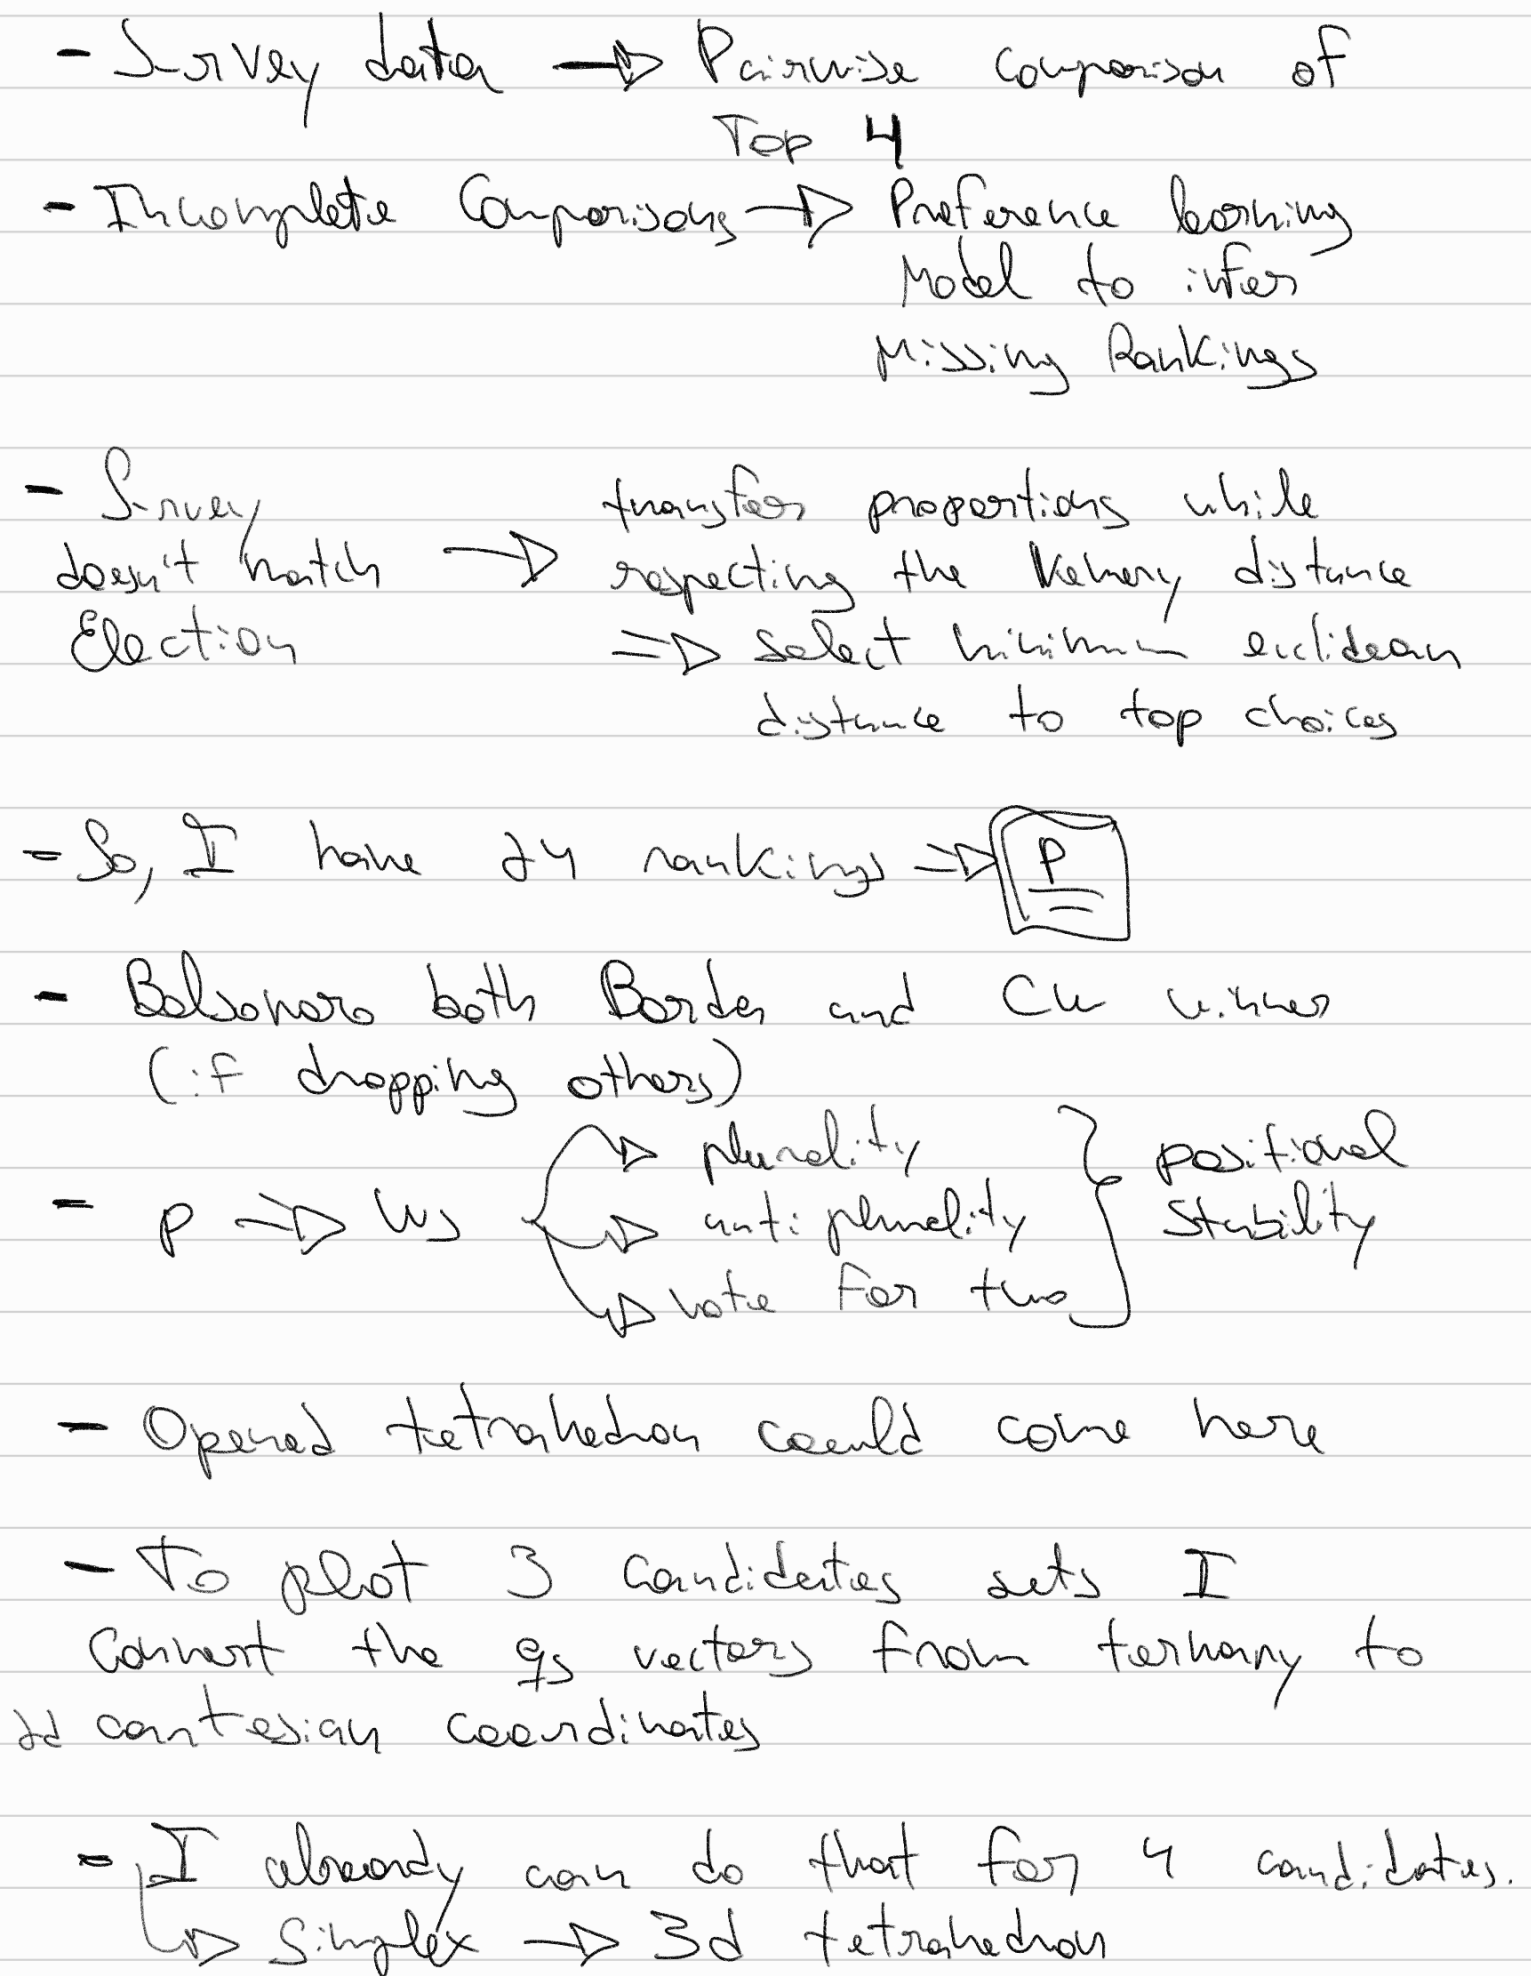 - Survey data → Pairwise Comparison of
Top 4
- Incomplete Comparisons → Preference learning
Model to infer
Missing Rankings
- Survey
doesn't match
Election
→ transfer proportions while
respecting the Kemeny distance
⇒ select minimum euclidean
distance to top choices
- So, I have 24 rankings ⇒ P
- Bolsonaro both Borda and CW winner
(if dropping others)
- p → Ws → plurality
→ anti plurality
→ vote for two
} positional
stability
- Opened tetrahedron could come here
- To plot 3 candidates sets I
Convert the qs vectors from ternary to
2d cartesian coordinates
- I already can do that for 4 candidates.
→ Simplex → 3d tetrahedron